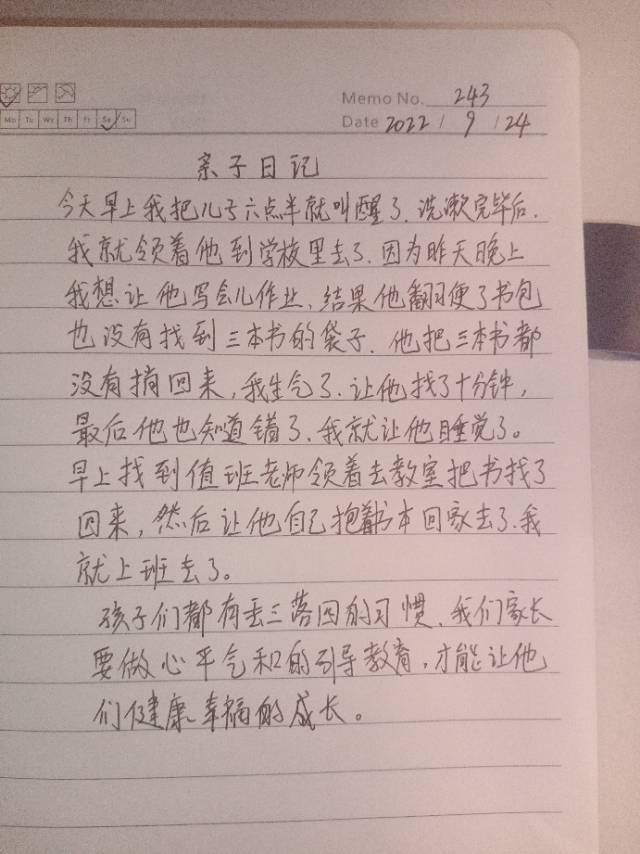 Memo No. 243
Mo Tu We Th Fr Sa Su
Date 2022 / 9 / 24
亲子日记
今天早上我把儿子六点半就叫醒了.洗漱完毕后.
我就领着他到学校里去了.因为昨天晚上
我想让他写会儿作业.结果他翻便了书包
也没有找到三本书的袋子.他把三本书都
没有捎回来,我生气了.让他找了十分钟,
最后他也知道错了.我就让他睡觉了。
早上找到值班老师领着去教室把书找了
回来,然后让他自己抱着书本回家去了.我
就上班去了。
孩子们都有丢三落四的习惯.我们家长
要做心平气和的引导教育.才能让他
们健康幸福的成长。